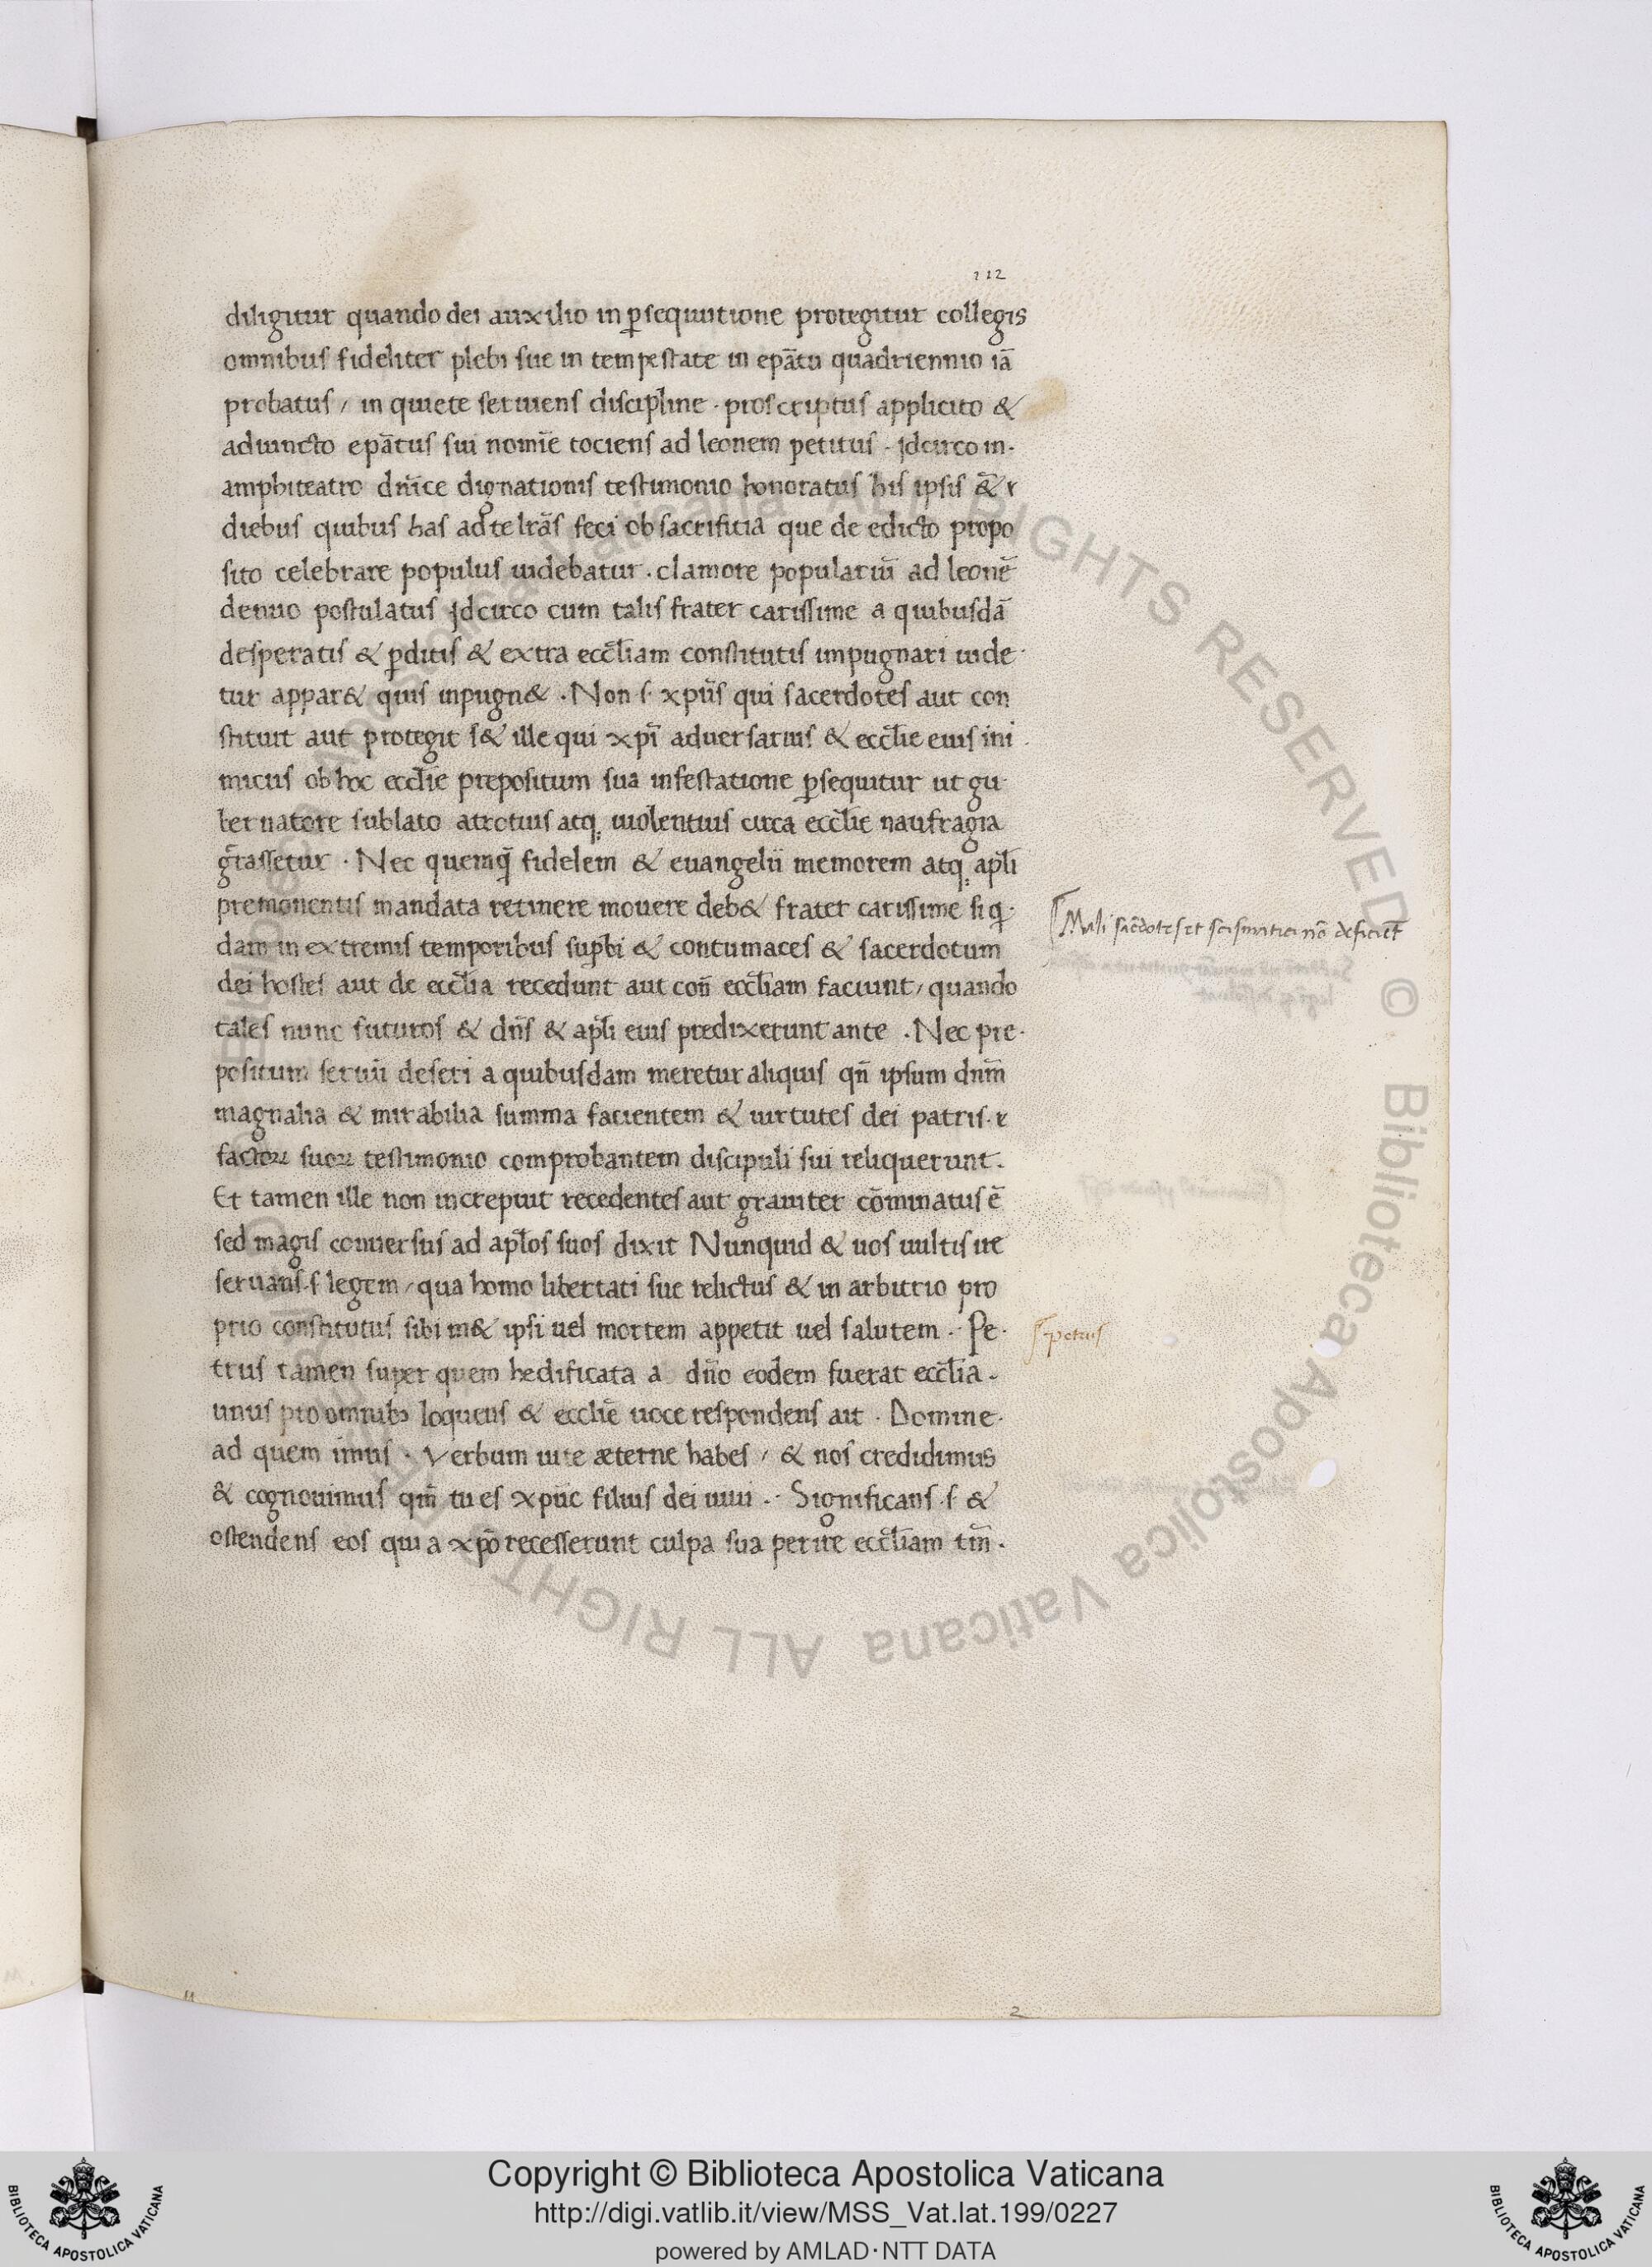 112
diligitur quando dei auxilio in ꝑsequutione protegitur collegis
omnibus fideliter plebi sue in tempestate in epātu quadriennio iā
probatus / in quiete seruiens discipline · proscriptus applicito &
adiuncto epātus sui nomīe tociens ad leonem petitus · jdcirco in·
amphiteatro dnīce dignationis testimonio honoratus his ipsis
diebus quibus has ad te lrās feci ob sacrificia que de edicto propo
sito celebrare populus uidebatur · clamore popularium̄ ad leonē
denuo postulatus jdcirco cum talis frater carissime a quibusdā
desperatis & ꝑditis & extra eccl̄iam constitutis impugnari uide·
tur appar& quis inpugn& · Non ·s· xpūs qui sacerdotes aut con
stituit aut protegit s& ille qui xpī aduersarius & eccl̄ie eius ini·
micus ob hoc eccl̄ie prepositum sua infestatione ꝑsequitur ut gu·
bernatore sublato atrotius atq; uiolentius circa eccl̄ie naufragia
grassetur · Nec quemq̄ fidelem & euangelii memorem atq; apl̄i
premonentis mandata retinere mouere deb& frater carissime si q̄·
dam in extremis temporibus supb̄i & contumaces & sacerdotum
dei hostes aut de eccl̄ia recedunt aut con̄ eccl̄iam faciunt / quando
tales nunc futuros & dn̄s & apl̄i eius predixerunt ante · Nec pre·
positum seruū deseri a quibusdam meretur aliquis qn̄ ipsum dnm̄
magnalia & mirabilia summa facientem & uirtutes dei patris ·
factoꝝ suoꝝ testimonio comprobantem discipuli sui reliquerunt ·
Et tamen ille non increpuit recedentes aut grauiter cōminatus ē
sed magis conuersus ad apl̄os suos dixit Nunquid & uos uultis ire
seruans ·s· legem / qua homo libertati sue relictus & in arbitrio pro
prio constitutus sibi m& ipsi uel mortem appetit uel salutem · Pe·
trus tamen super quem hedificata a dn̄o eodem fuerat eccl̄ia ·
unus pro omnibꝰ loquens & eccliē uoce respondens ait · Domine·
ad quem imus · Verbum uite æterne habes / & nos credidimus
& cognouimus qm̄ tu es xpūc filius dei uiui · Significans ·s· &
ostendens eos qui a xpō recesserunt culpa sua perire eccl̄iam tm̄ ·
Mali sac̄dotes et scismatici nō deficiēt
petrus
2
ALL RIGHTS RESERVED © Biblioteca Apostolica Vaticana ALL RIGHTS
Copyright © Biblioteca Apostolica Vaticana
http://digi.vatlib.it/view/MSS_Vat.lat.199/0227
powered by AMLAD·NTT DATA
BIBLIOTECA APOSTOLICA VATICANA
BIBLIOTECA APOSTOLICA VATICANA